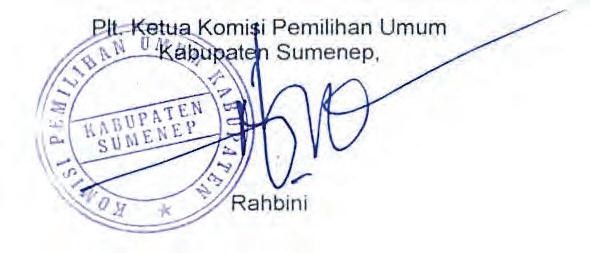 Plt. Ketua Komisi Pemilihan Umum
Kabupaten Sumenep,
KOMISI PEMILIHAN UMUM KABUPATEN
KABUPATEN
SUMENEP
Rahbini